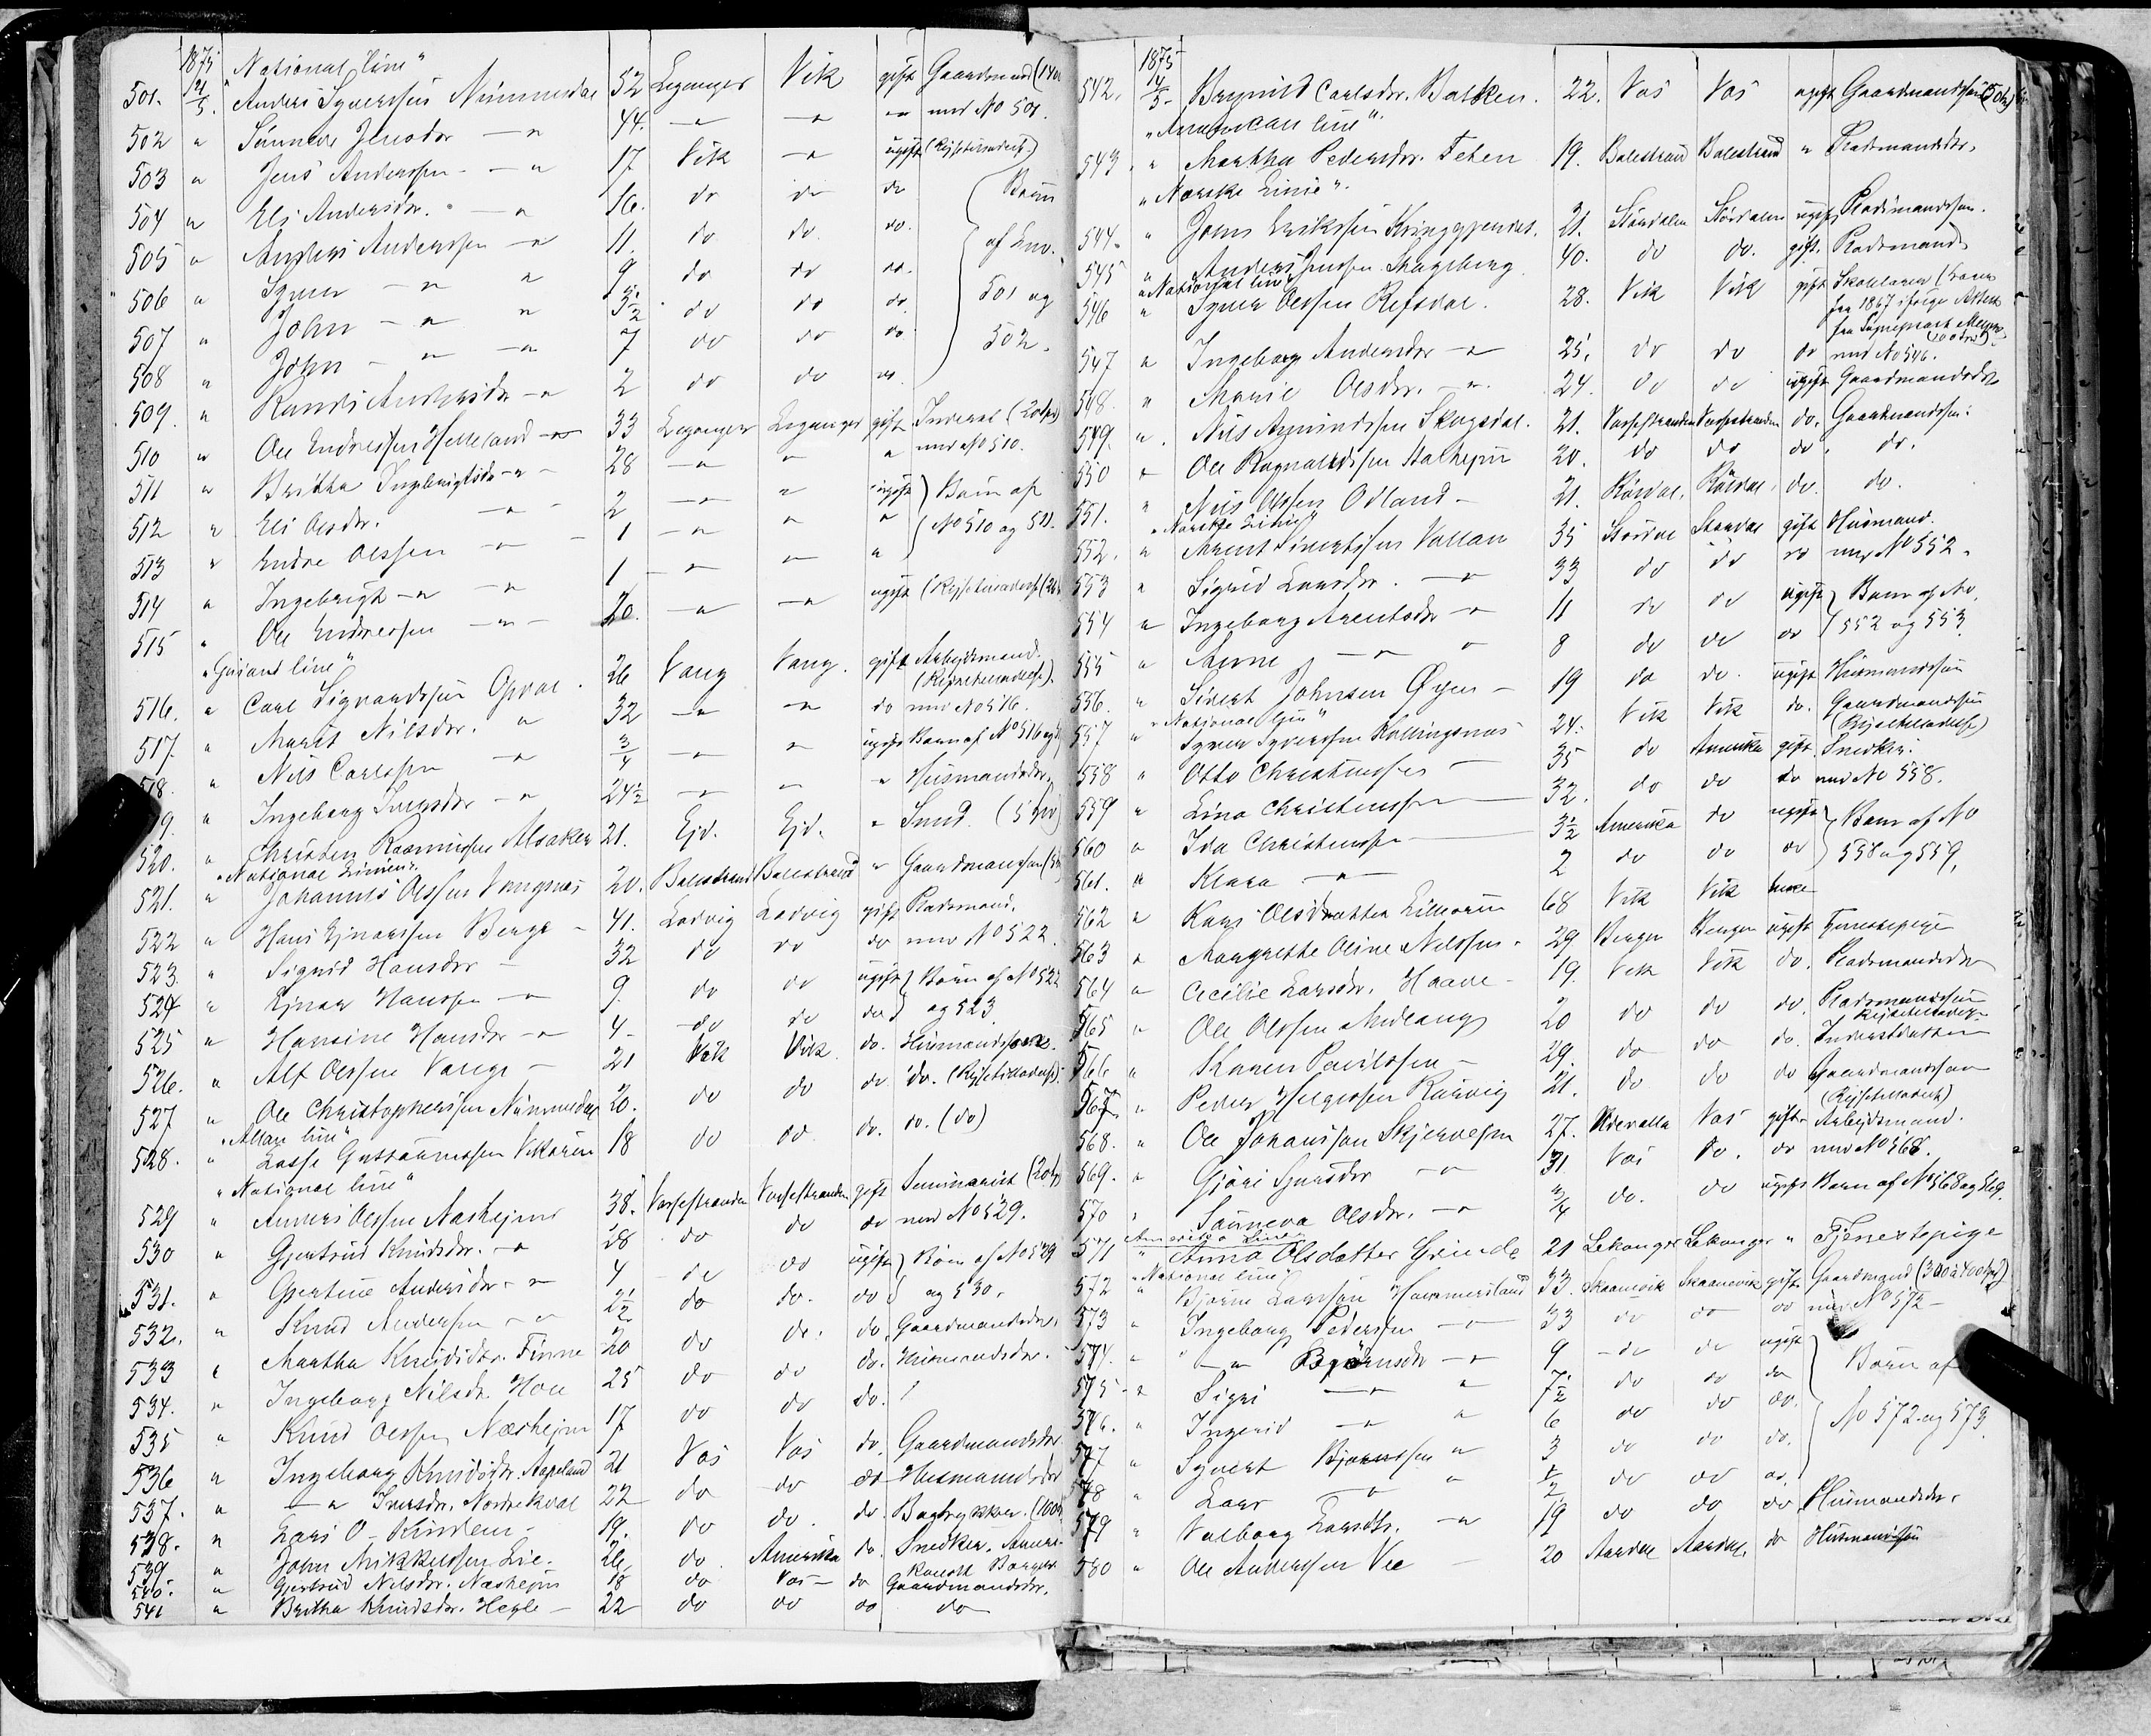 1875 National line"
501. 14/5. Anders Syversen Nummedal 52 Leganger Vik gift Gaardmand
502 " Sunneva Jensdr — " 44. — " — " — " med No 501.
503 " Jens Anderssen — " 17 Vik — " ugift (Rejsetilladelse)
504 " Eli Andersdr. — " 16. do do do Børn
505 " Anders Anderssen — " 11. do do. do. af Lno.
506 " Syver — " " 9 do do do. 501 og
507 " John — " " 5 1/2 do do do 502.
508 " John — " — " 7 do do do
509. " Randi Andersdr — " 2 do do do
510 " Ole Endresen Helleland — " 33 Leganger Leganger gift Inderst
511 " Britha Ingebrigtsdr — " — 28 — " " " med No 510.
512 " Eli Olsdr. — " — 2 — " " ugift Børn af
513 " Endre Olssen — " — 1 — " " " No 510 og 511.
514 " Ingebrigt — " — " 1 — " — "
515 " Ole Endressen — " — 20. — " — " ugift (Rejsetilladelse
"Guiand line"
516. " Carl Sigvardssen Opdal 26 Vang Vang. gift Arbejdsmand. (Rejsetilladelse).
517. " Marit Nilsdr. " 32 — " — " do med No 516.
518. " Nils Carlssen — " 3/4 — " — " ugift Barn af No 516 og
9. " Ingeborg Iversdr — " 24 1/2 — " — " " Husmandsdr.
520. " Christen Rasmussen Alsaker 21. Ejd. Ejd. "
"National Linien"
521. " Johannes Olssen Vangsnes 20. Balestrand Balestrand " Gaardmandssøn
522 " Hans Ejnarssen Berge — 41. Ladvig Ladvig gift Pladsmand.
523. " Sigrid Hansdr — 32 do do do med No 522.
524 " Ejnar Hanssen — " 9. do do ugift Børn af No 522
525 " Hansine Hansdr — " 4. do do do og 523.
526. " Alf Olssen Vange — 21 Vik Vik do. Husmandssøn.
527 " Ole Christophersen Nummedal 20. do do do do. (Rejsetilladelse).
"Allan line"
528. " Lasse Gustavussen Vikøren 18 do do. do. do. (do)
"National line"
529 " Anders Olssen Næshejm 38. Vossestranden Vossestranden gift Seminarist
530 " Gjertrud Knudsdr. — " 28 do do do med No 529.
531. " Gjertine Andersdr — " 4 do do ugift Børn af No 529
532. " Knud Andersen — " 2 1/2 do do. do og 530.
533 " Martha Knudsdtr. Finne 20 do do. do. Gaardmandsdr.
534. " Ingeborg Nilsdr. Hole 25 do do do. Husmandsdr.
535 " Knud Olssen Næshejm 17 do do do.
536 " Ingeborg Knudsdtr. Aapeland 21 Vos Vos do. Gaardmandsdtr
537. " — " Iversdr. Nordrekval 22 do do do Husmandsdr
538. " Lars O. Kindem — 19. do do. do. Bogtrykker.
539 " John Mikkelssen Lie. 26. do. Amerika do. Snedker. Ameri-kansk Borger
540. " Gjertrud Nilsdr. Næshejm 18 do Vos — do Gaardmandsdr.
541 " Britha Knudsdr. Hegle — 22 do do do do
1875
542. 14/5. Brynild Carlsdr. Balken. 22. Vos Vos ugift Gaardmandssøn
"American line".
543. " Martha Pedersdr. Feten 19. Balestrand Balestrand " Pladsmandsdr.
"Norske Linie".
544. " Johns Erikssen Kringgjerdet. 21. Størdalen Størdalen ugift Pladsmandssøn.
545 " Anders Jenssen Skageberg 40. do do. gift. Pladsmand
"National line"
546 " Syver Olssen Refsdal. 28. Vik Vik gift Skolelærer
fra 1867 ifølge Attest
fra Sogneprest
547 " Ingeborg Andersdr — " 25. do do do med No 546.
548. " Marie Olsdr. — " 24. do do ugift Gaardmandsdr
549. " Nils Aamundssen Skogsdal. 21. Vossestranden Vossestranden do. Gaardmandssøn.
550 " Ole Ragnaldssen Stalhejm 20. do do do. do.
551. " Nils Olssen Odland — 21. Røldal. Røldal. do. do.
"Norske Linie"
552. " Arent Sivertsen Vollan 35 Stordal Stordal gift Husmand.
553 " Sigrid Larsdr. — " 33 do do do med No 552.
554 " Ingeborg Arentsdr — " 11 do do ugift Børn af No.
555 " Anne — " " 8 do do do 552 og 553.
556. " Sivert Johnsen Øyen — 19 do do. ugift Husmandssøn
"National line"
557 " Syver Syverssen Hallingsnes 24. Vik Vik do. Gaardmandssøn (Rejsetilladelse)
558 " Otto Christenssen — 35 do Amerika gift Snedker.
559 " Lina Christenssen — 32. do do do med No 558.
560 " Ida Christenssen — 3 1/2 Amerika do ugift Børn af No
561. " Klara — " — 2 do do do 558 og 559.
562 " Kari Olsdatter Lillerun 68 Vik Vik Enke
563 " Margrethe Oline Nilssen. 29 Bergen Bergen ugift Tjenestepige
564 " Cecilie Larsdr. Haave — 19. Vik Vik do. Pladsmandsdr
565 " Ole Olssen Midlang 20 do do do. Pladsmandssøn Rejsetilladelse
566 " Karen Poulssen — 29. do do do. Inderstdatter
567. " Peder Helgessen Rusvig 21. do do do Gaardmandssøn (Rejsetilladelse)
568. " Ole Johanssen Skjervejm 27. Udevalla Vos gift Arbejdsmand.
569. " Gjøri Sjursdr — " 31. Vos do. do med No 568.
570 " Sunneva Olsdr. — " 3/4 do. do ugift Barn af No 568 og 569.
Amerika Linien
571 " Anna Olsdatter Grinde 21 Lekanger Lekanger " Tjenestepige
"National line"
572 " Bjørne Larssen Hammersland 33. Skaanevik Skaanevik gift Gaardmand
573 " Ingeborg Pederssen — " 33 do do do med No 572 —
574. " — " Bjørnsdr — " 9 do do ugift Børn af
575 " Sigri — " " 7 1/2 do do do
576. " Ingerid — " " 6 do do do. No 572 og 573.
577 " Syvert Bjørnssen " 3 do do do.
578 " Lars — " " 1/2 do do do.
579 " Valborg Larsdtr. — " 19 do do do Husmandsdr.
580 " Ole Anderssen Vee — 20 Aardal Aardal. do Husmandssøn